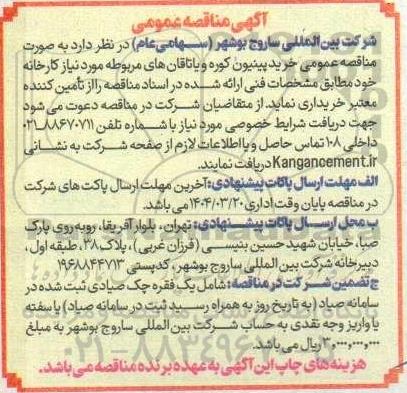 آگهی مناقصه عمومی
شرکت بین‌المللی ساروج بوشهر (سهامی‌عام) در نظر دارد به صورت
مناقصه عمومی خرید پینیون کوره و یاتاقان های مربوطه مورد نیاز کارخانه
خود مطابق مشخصات فنی ارائه شده در اسناد مناقصه را از تأمین کننده
معتبر خریداری نماید. از متقاضیان شرکت در مناقصه دعوت می شود
جهت دریافت شرایط خصوصی مورد نیاز با شماره تلفن ۸۸۶۷۰۷۱۱-۰۲۱
داخلی ۱۰۸ تماس حاصل و یا اطلاعات لازم از صفحه شرکت به نشانی
Kangancement.ir دریافت نمایند.
الف مهلت ارسال پاکات پیشنهادی: آخرین مهلت ارسال پاکت های شرکت
در مناقصه پایان وقت اداری ۱۴۰۴/۰۳/۲۰ می باشد.
ب محل ارسال پاکات پیشنهادی: تهران، بلوار آفریقا، روبه روی پارک
صبا، خیابان شهید حسین بنیسی (فرزان غربی)، پلاک ۳۸، طبقه اول،
دبیرخانه شرکت بین المللی ساروج بوشهر، کدپستی ۱۹۶۸۸۴۴۷۱۳
ج تضمین شرکت در مناقصه: شامل یک فقره چک صیادی ثبت شده در
سامانه صیاد (به تاریخ روز به همراه رسید ثبت در سامانه صیاد) یا سفته
یا واریز وجه نقدی به حساب شرکت بین المللی ساروج بوشهر به مبلغ
۳,۰۰۰,۰۰۰,۰۰۰ ریال می باشد.
هزینه های چاپ این آگهی به عهده برنده مناقصه می باشد.